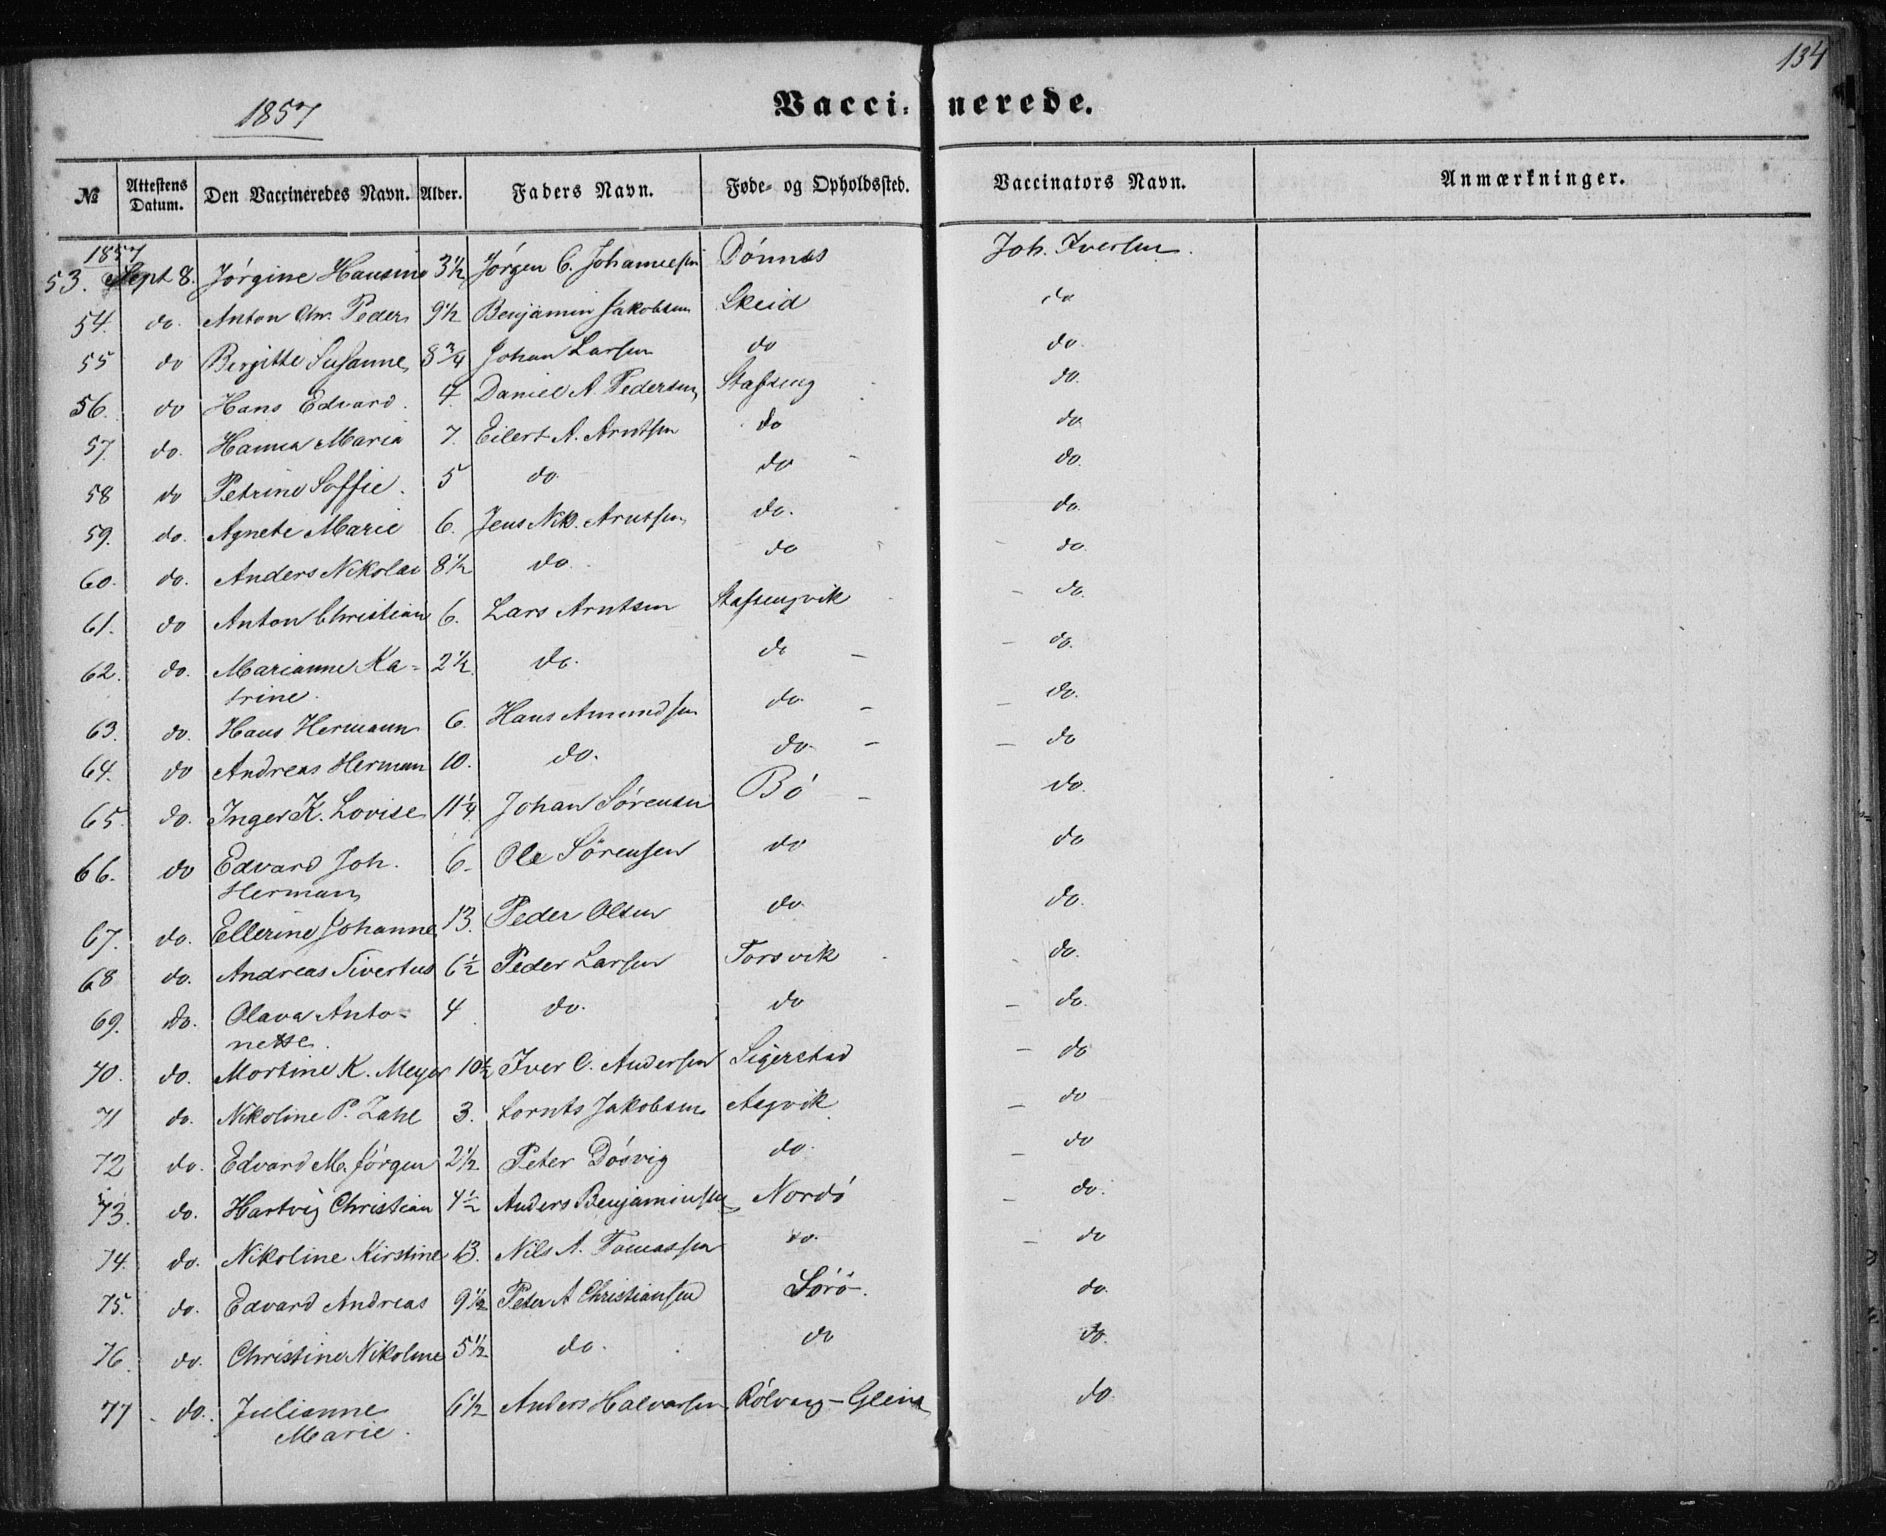 134
1857
Vaccinerede.
№ Attestens Datum. Den Vaccineredes Navn. Alder. Faders Navn. Føde- og Opholdssted. Vaccinators Navn. Anmærkninger.
1857
53. Sept 8. Jørgine Hansine 3½ Jørgen C. Johannesen Dønnes Joh. Iversen.
54. do. Anton Chr. Peder 9½ Benjamin Jakobsen Skeid do
55 do Bergitte Susanne 8¾ Johan Larsen do do.
56. do Hans Edvard. 4. Daniel A. Pedersen Stafseng do.
57. do. Hanna Maria 7. Eilert A. Arntsen do do.
58 do Petrine Soffie. 5 do. do do.
59. do. Agnete Marie 6. Jens Nik. Arntsen do. do.
60. do. Anders Nikolai 8½ do. do do.
61. do Anton Christian 6. Lars Arntsen Stafsengvik do.
62. do. Marianne Ka- 2½. do. do do.
trine.
63. do. Hans Hermann 6. Hans Amundsen do. do.
64. do Andreas Herman 10. do. do. do
65. do. Inger K. Lovise 11¼ Johan Sørensen Bö do.
66. do Edvard Joh. 6. Ole Sörensen do do
Herman
67. do. Ellerine Johanne 13. Peder Olsen do. do.
68 do. Andreas Sivertus 6½ Peder Larsen Torsvik do.
69. do. Olava Anto- 4 do. do do.
nette.
70. do. Mortine K. Meyer 10½ Iver C. Andersen Sigerstad do
71 do. Nikoline P. Zahl 3. Lornts Jakobsen Aagvik do
72 do. Edvard M. Jørgen 2½ Peter Dösvig do. do
73. do. Hartvig Christian 4½ Anders Benjaminsen Nordö do.
74. do. Nikoline Kirstine 13. Nils A. Tomassen do. do
75. do. Edvard Andreas 9½ Peter A Christiansen Sörö. do.
76. do. Christine Nikoline 5½ do. do do.
77 do. Julianne 6½ Anders Halvorsen Rölvaag-Glein do.
Marie.